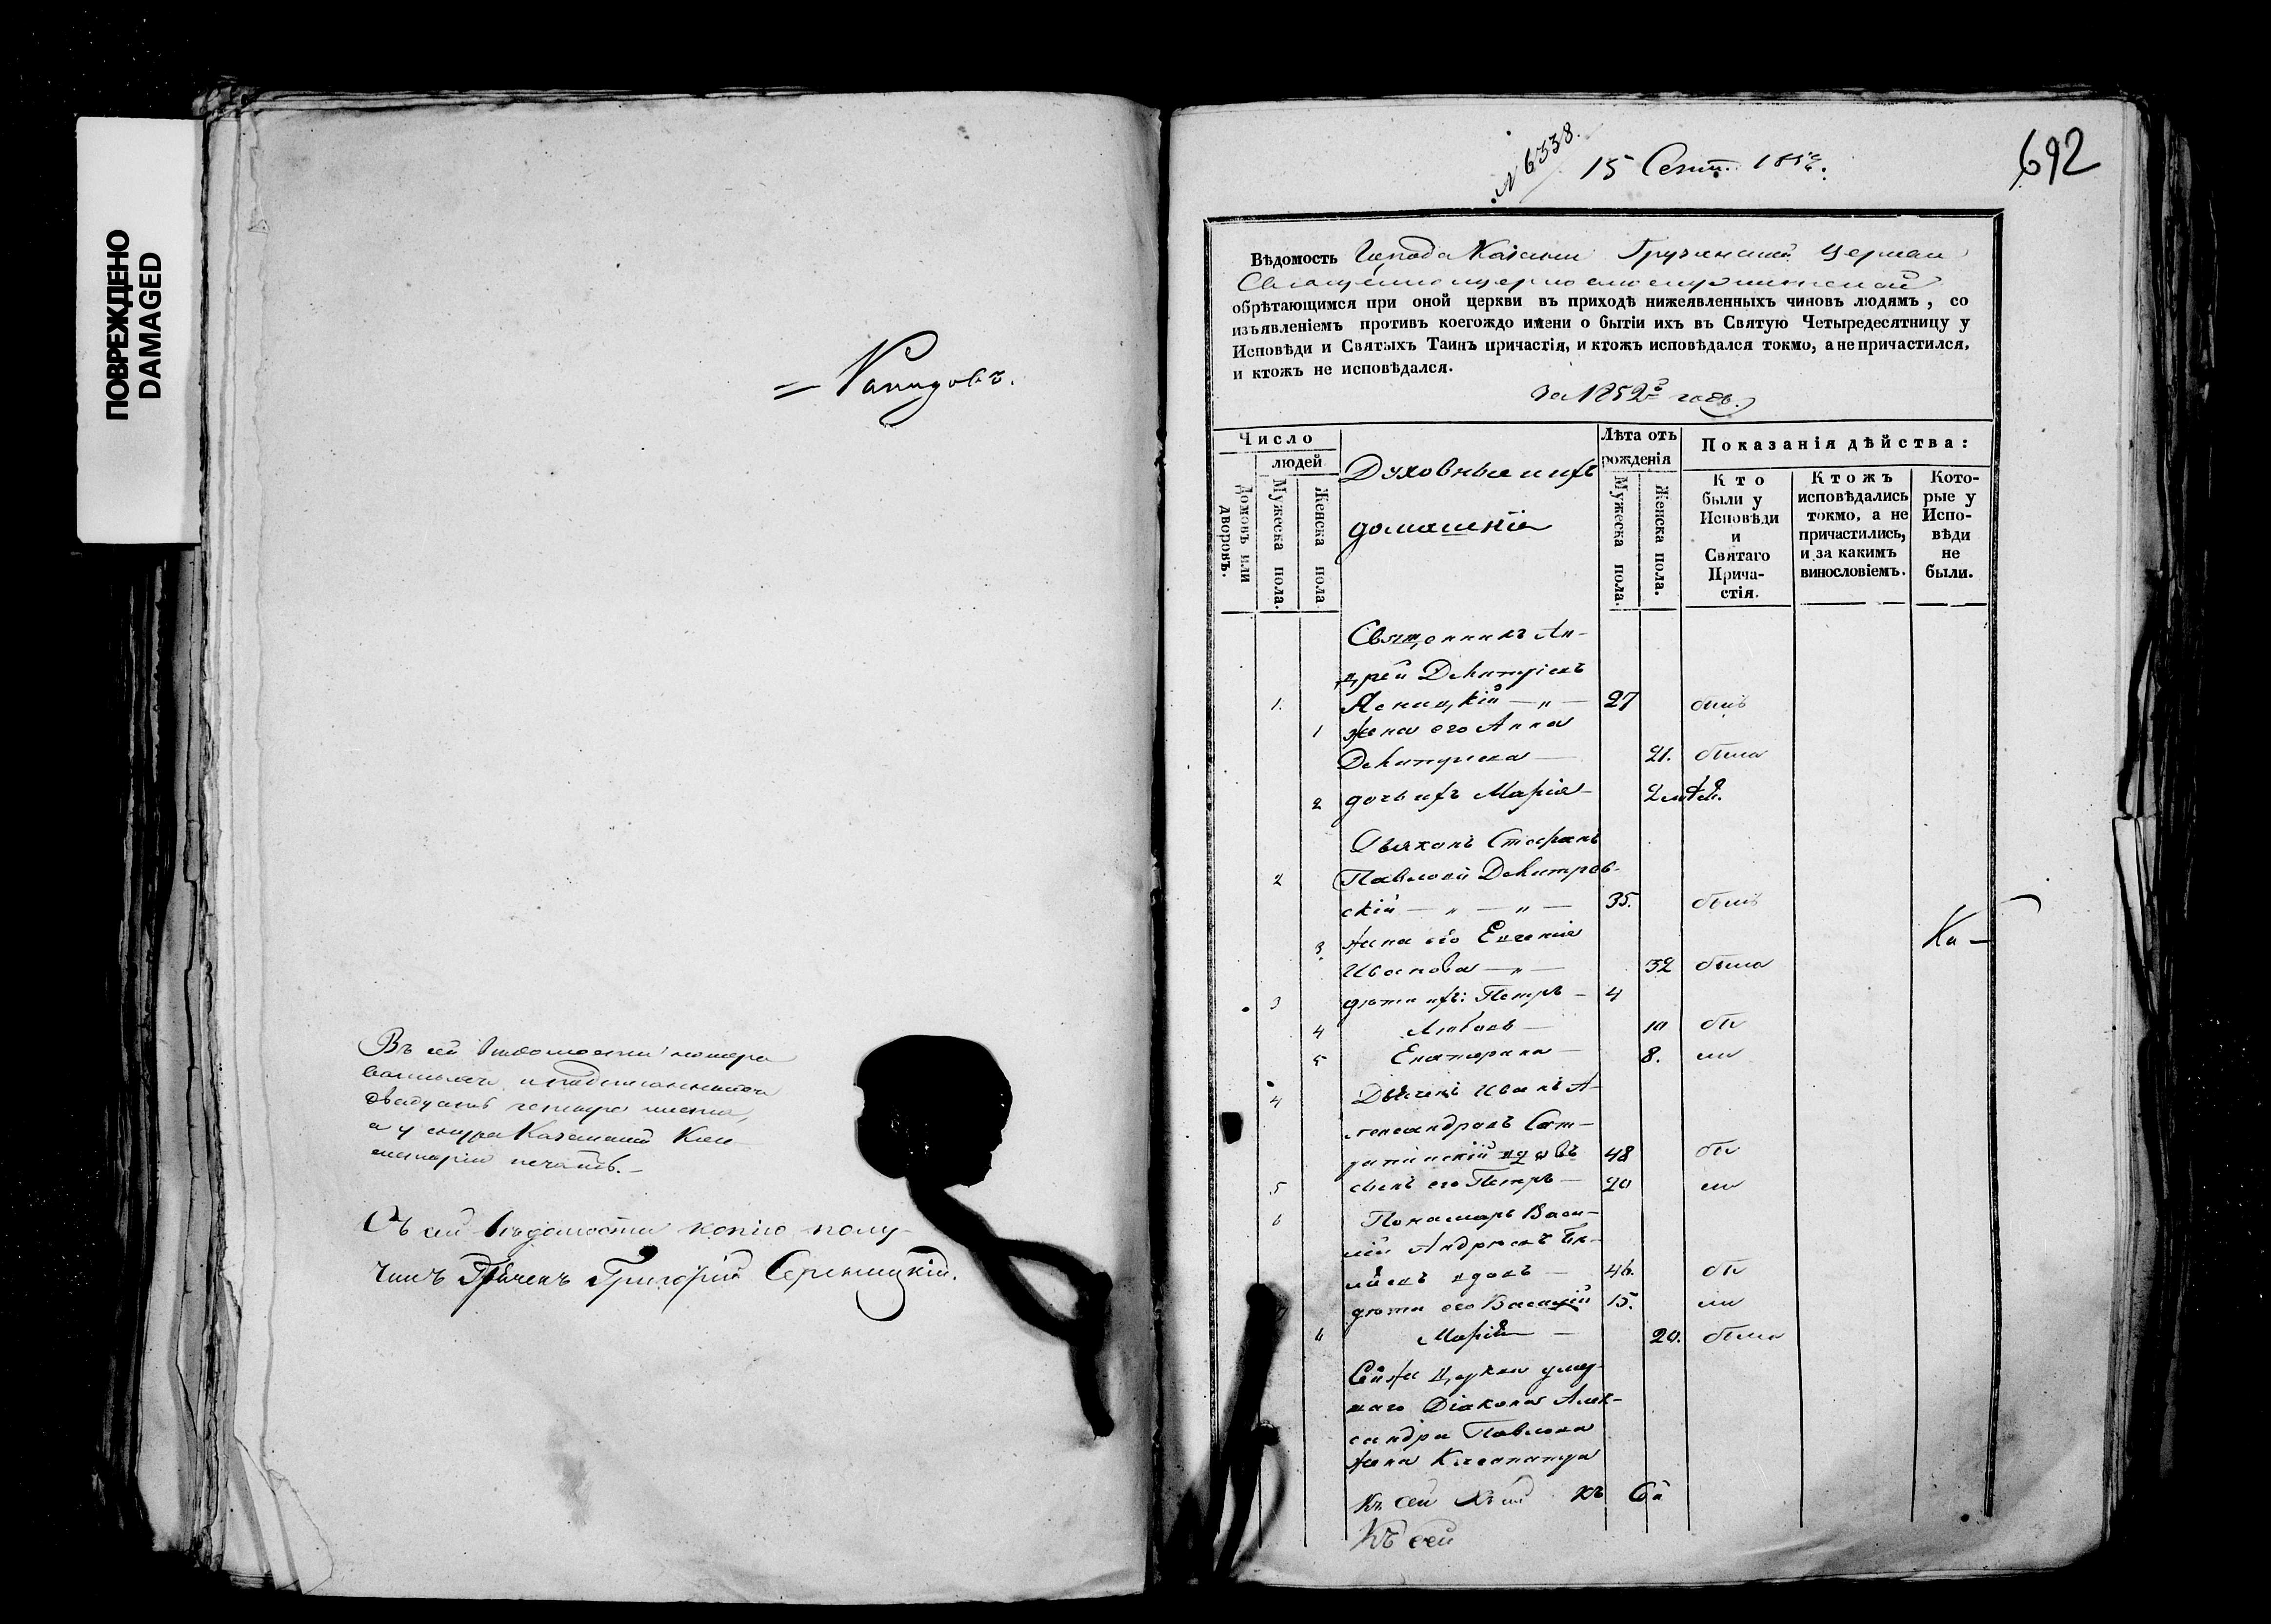 ПОВРЕЖДЕНО
DAMAGED
Въ сей ведомости нумеро
двадцать четыре листа,
а у шнура Казанской Кон-
систоріи печать.
Съ сей ведомости копію полу-
чилъ Дьячекъ Григорій
№ 6338.
15 Сент. 185
692
Вѣдомость Города Казани Грузинской Церкви
обрѣтающимся при оной церкви въ приходѣ нижеявленныхъ чиновъ людямъ, со
изъявленіемъ противъ коегождо имени о бытіи ихъ въ Святую Четыредесятницу у
Исповѣди и Святыхъ Таинъ причастія, и ктожъ исповѣдался токмо, а не причастился,
и ктожъ не исповѣдался.
За 1852й годъ.
Число
людей
Домовъ или дворовъ.
Мужеска пола.
Женска пола
Духовные ихъ
домашніе
Лѣта отъ рожденія
Мужеска пола.
Женска пола.
Показанія дѣйства:
Кто были у Исповѣди и Святаго Прича- стія.
Ктожъ исповѣдались токмо, а не причастились, и за какимъ винословіемъ.
Кото- рые у Испо- вѣди не были.
Священникъ Ан-
дрей Димитріевъ
1. Ясницкій — „ — 27 былъ
1 жена его Анна
Димитріева — 21. была
2 дочь ихъ Марія — 2
Діаконъ Стефанъ
2 Павловъ Димитров-
скій — „ — „ — 35. былъ
3 жена его Евгенія
Иванова — „ — 32 была
Ка —
3 дѣти ихъ: Петръ — 4
4 Любовь — 10 бы
5 Екатерина — 8. ли
4 Дьячекъ Иванъ А-
лександровъ
вдовъ 48 бы
5 сынъ его Петръ — 20 ли
6 Пономарь Васи-
лій Андреевъ
вдовъ — 46. бы
7 дѣти его Василій 15. ли
Марія — 20. была
Сей же Церкви умер-
шаго Діакона Алек-
сандра Павлова
жена Клеопатра
Къ сей
Къ сей